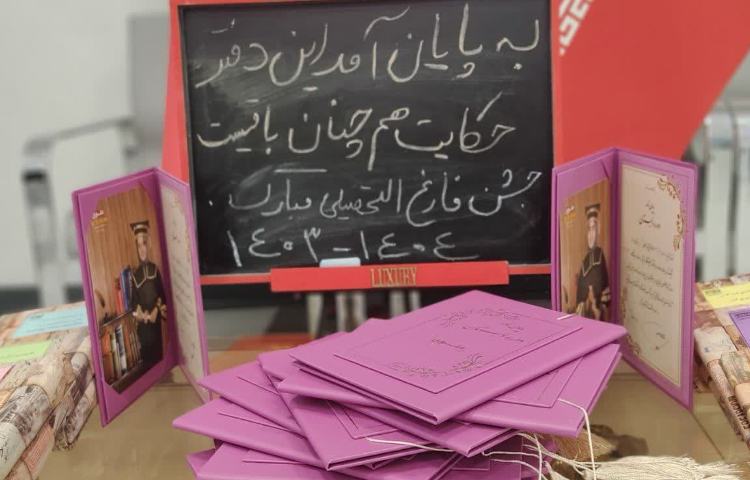 به پایان آمد این دفتر
حکایت هم چنان باقیست
جشن فارغ التحصیلی مبارک.
۱۴۰۳-۱۴۰۴
LUXURY